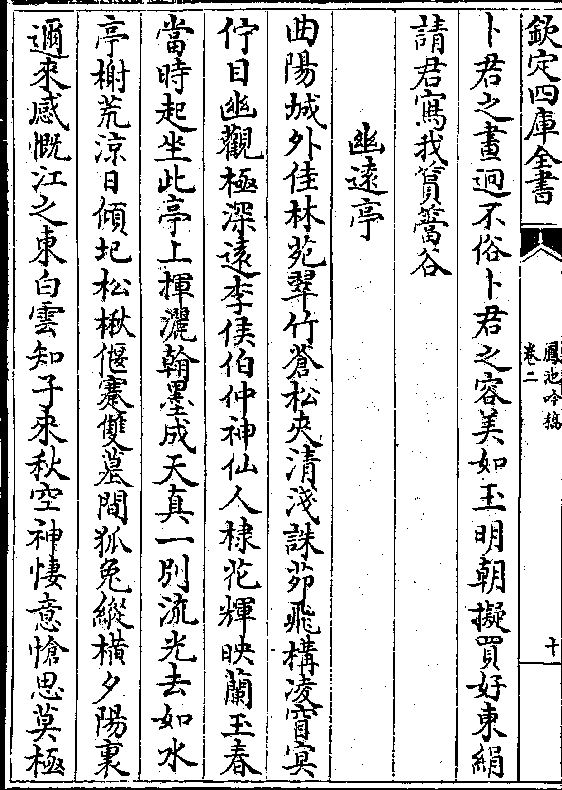 欽定四庫全書
鳳池吟稿
卷二
十
卜君之畫迥不俗卜君之容美如玉明朝擬買好東絹
請君寫我篔簹谷
幽遠亭
曲陽城外佳林苑翠竹蒼松夾清淺誅茆飛構凌窅㝠
佇目幽觀極深遠李侯伯仲神仙人棣花輝映蘭玉春
當時起坐此亭上揮灑翰墨成天真一別流光去如水
亭榭荒涼日傾圮松楸偃蹇雙墓間狐兔縱横夕陽裏
邇來感慨江之東白雲知子乘秋空神悽意愴思莫極